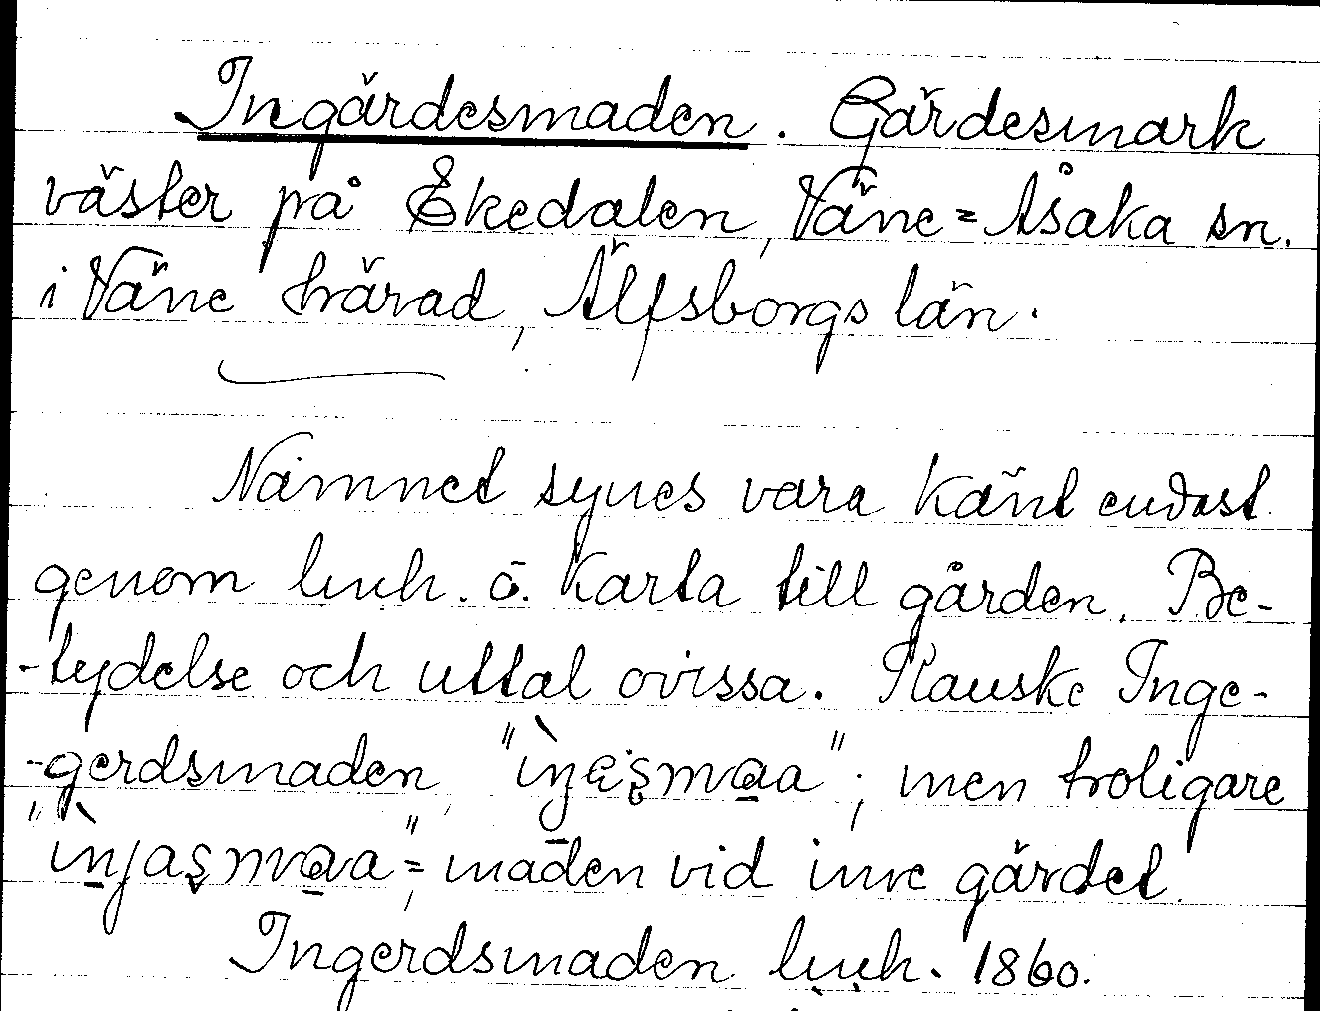 Ingärdesmaden. Gärdesmark
väster på Ekedalen, Väne=Åsaka sn.
i Väne härad, Älfsborgs län.
Namnet synes vara känt endast
genom lmh. o. karta till gården. Be-
-tydelse och uttal ovissa. Kanske Inge-
-gerdsmaden, " ", men troligare
" "= maden vid inre gärdet.
Ingerdsmaden lmh. 1860.